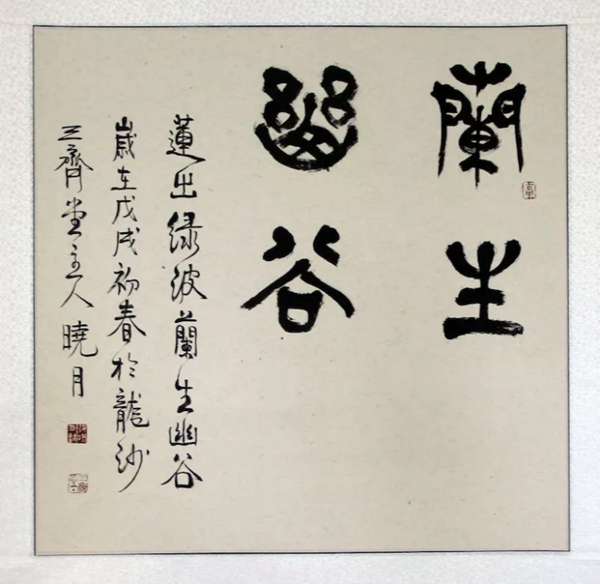 蘭生
幽谷
蓮出緑波蘭生幽谷
歲在戊戌初春於龍沙
三齊堂主人曉月